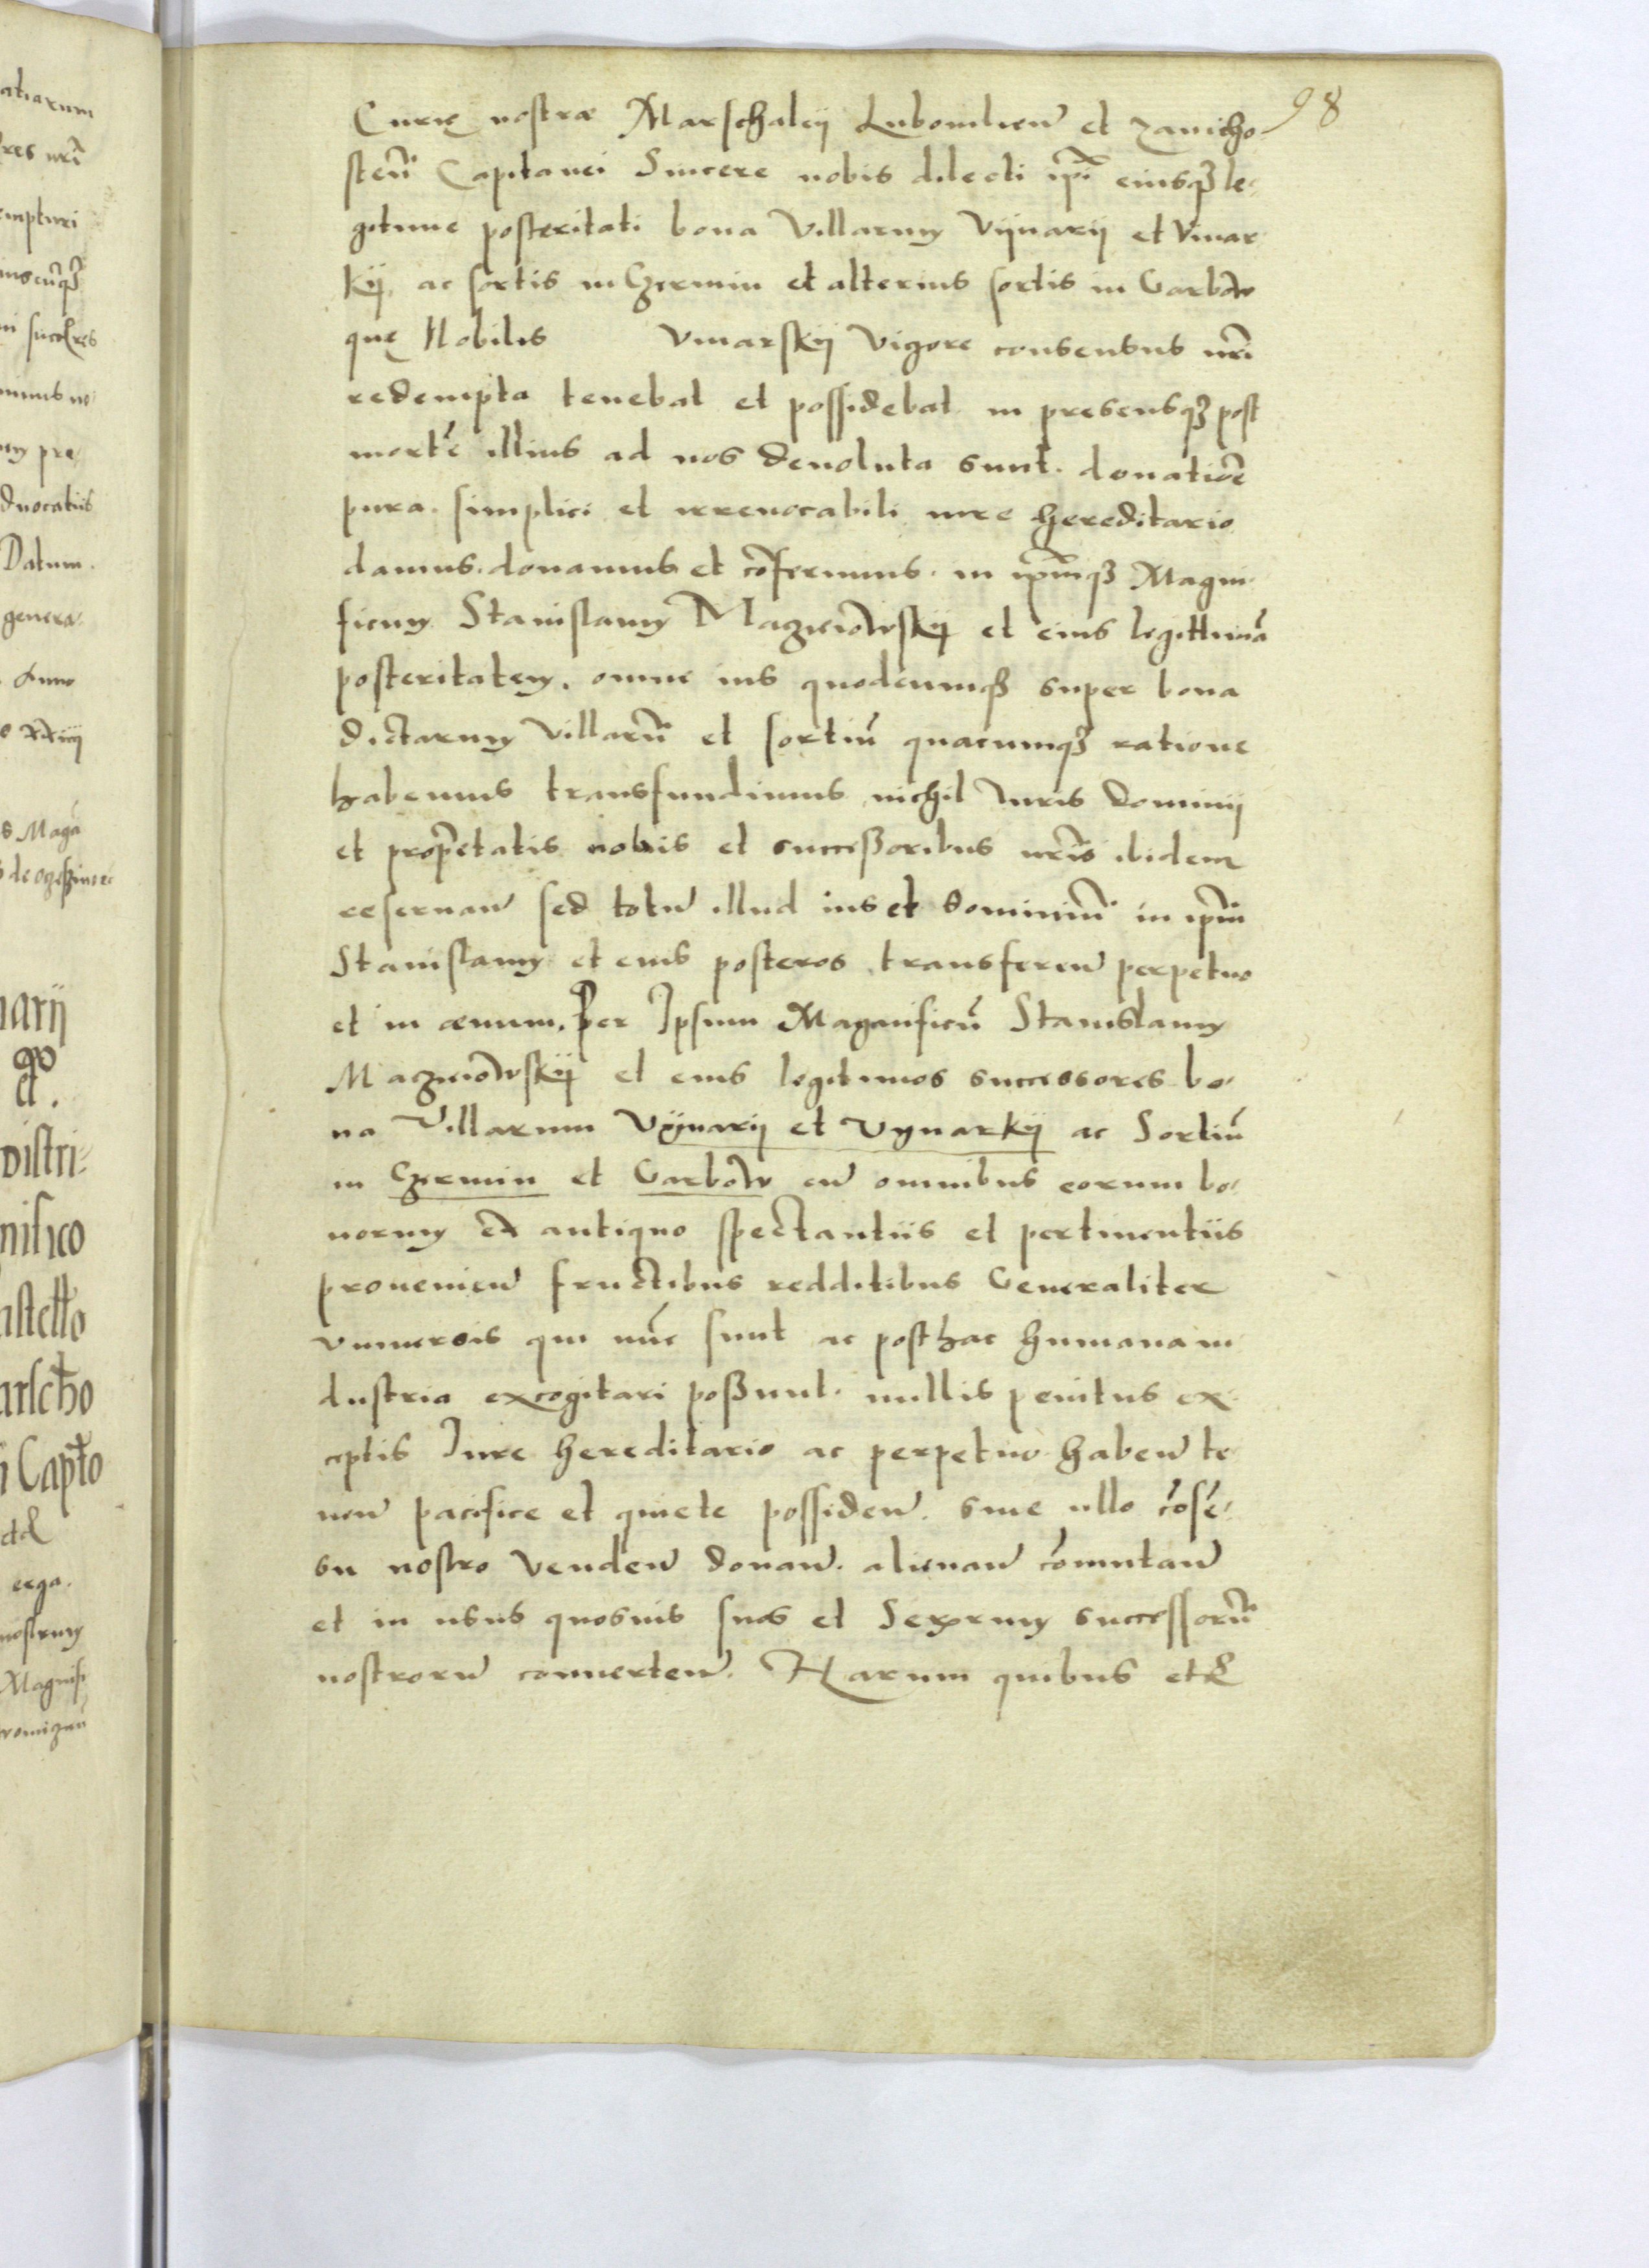 98
Curię nostrae Marschalcij Lubomlien̄ et Zavicho-
sten̄ Capitanei Sincere nobis dilecti ip̄i eiusq3 le-
gitime posteritati bona Villarum Vijnarij et Vinar
kij, ac sortis in Czermin et alterius sortis in Garbow
quę Nobilis Vinarskij Vigore consensus nr̄i
redempta tenebat et possidebat in presensq3 post
mortē illius ad nos devoluta sunt. donatiōe
pura. simplici et irrevocabili iure hereditario
damus. donamus et cōferimus. in ip̄mq3 Magni-
ficum Stanislaum Maczieiowskij et eius legittimā
posteritatem. omne ius quodcumq3 super bona
dictarum Villarū et sortiū quacumq3 ratione
habemus transfundimus nichil Iuris dominij
et prop̄etatis nobis et successoribus nr̄is ibidem
reservan̄ sed totū illud ius et dominiū in ip̄m
Stanislaum et eius posteros transferen̄ perpetuo
et in aevum. Per Ipsum Maganificū Stanislaum
Maczieiowskij et eius legitimos successores bo-
na Villarum Vÿnarij et Vynarkij ac Sortiū
in Czermin et Garbow cū omnibus eorum bo-
norum ex antiquo spectantiis et pertinentiis
provenien̄ fructibus redditibus Generaliter
vniversis qui nūc sunt ac posthac humana in
dustria excogitari possunt. nullis penitus ex-
ceptis Iure hereditario ac perpetuo haben̄ te
nen̄ pacifice et quiete possiden̄. sine ullo cōsē-
su nostro venden̄ donan̄. alienan̄ cōmutan̄
et in usus quosvis suos et Seporum successorū
nostrorū converten̄. Harum quibus etc